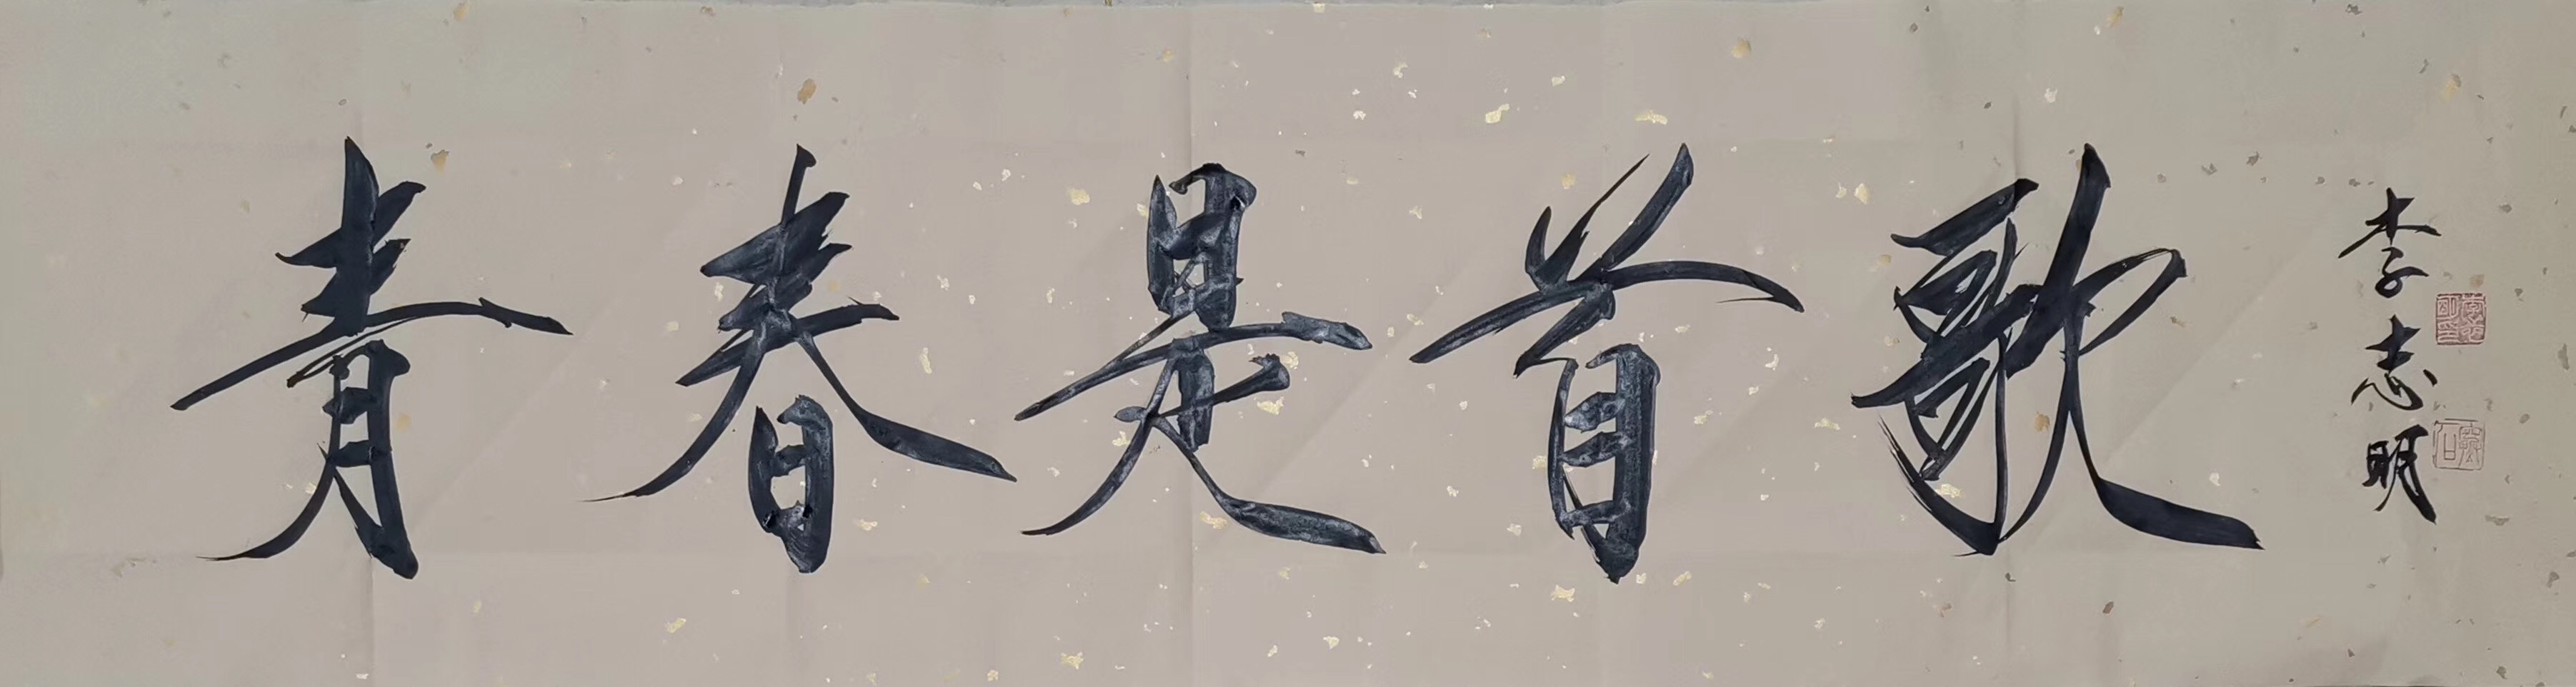 青春是首歌
李志明